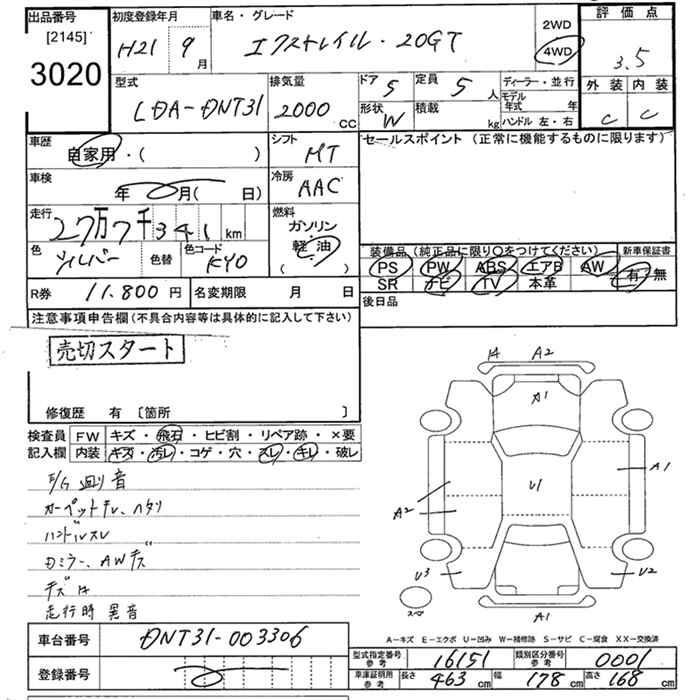 出品番号
[2145]
3020
初度登録年月
H21 9月
車名・グレード
エクストレイル・20GT
2WD
4WD
評価点
3.5
外装 内装
C C
型式
LDA-DNT31
排気量
2000 CC
ドア 5
形状 W
定員 5 人
積載 kg
ディーラー・並行
モデル年式 年
ハンドル 左・右
車歴
自家用・( )
シフト
MT
セールスポイント (正常に機能するものに限ります)
車検
年 月( 日)
冷房
AAC
走行
27万7千341 km
燃料
ガソリン
軽油
( )
色
シルバー
色替
色コード
KY0
装備品 (純正品に限り○をつけてください)
新車保証書
PS PW ABS エアB AW
SR ナビ TV 本革
有・無
R券 11.800 円
名変期限 月 日
後日品
注意事項申告欄 (不具合内容等は具体的に記入して下さい)
売切スタート
修復歴 有 [箇所 ]
検査員記入欄
FW キズ・飛石・ヒビ割・リペア跡・×要
内装 キズ・汚レ・コゲ・穴・スレ・キレ・破レ
E/G 廻り 音
カーペットキレ、ヘタリ
ハンドルスレ
Dミラー、AWキズ
走行時 異音
A2
A1
A1
A2
U1
U3
U2
スペ
A1
A-キズ E-エクボ U-凹み W-補修跡 S-サビ C-腐食 XX-交換済
車台番号 DNT31-003306
登録番号
型式指定番号 参考 16151
類別区分番号 参考 0001
車庫証明用 参考 長さ 463 cm 幅 178 cm 高さ 168 cm